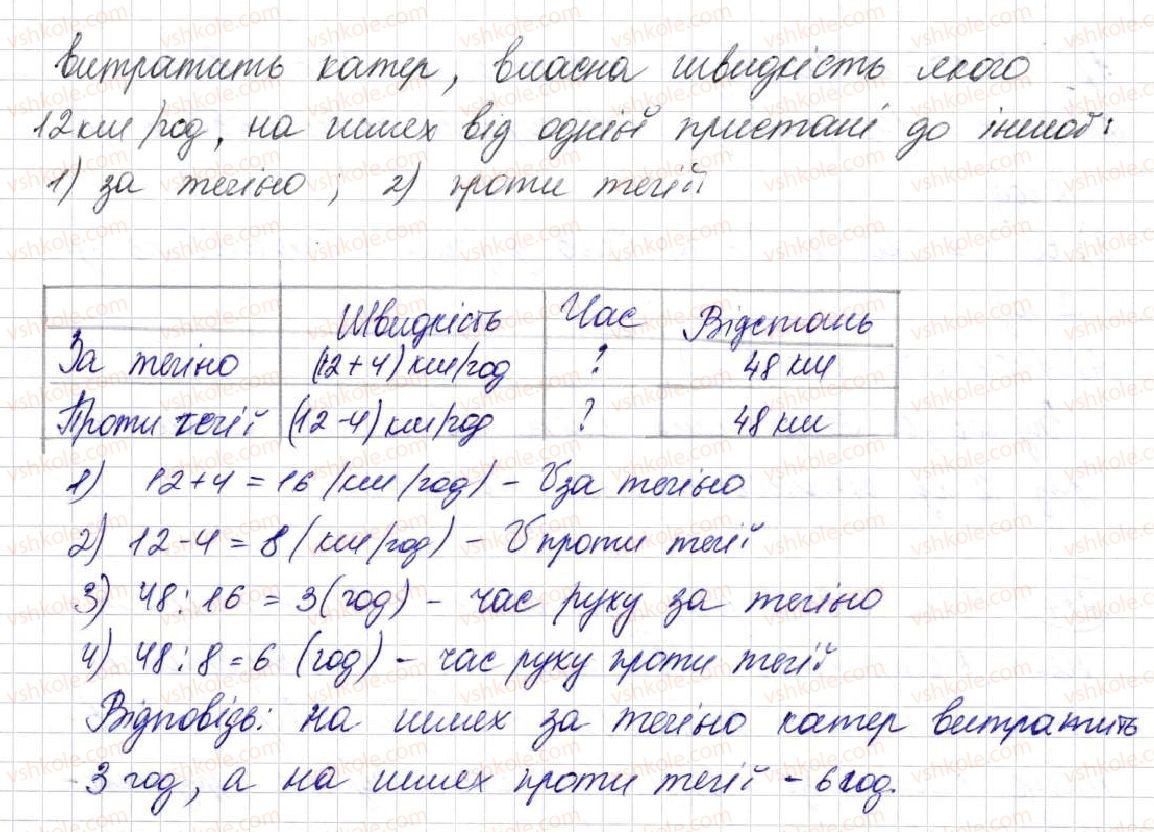 витратить катер, власна швидкість якого
12 км/год, на шлях від однієї пристані до іншої:
1) за течією; 2) проти течії
Швидкість Час Відстань
За течією (12+4) км/год ? 48 км
Проти течії (12-4) км/год ? 48 км
1) 12+4=16 (км/год) - V за течією
2) 12-4=8 (км/год) - V проти течії
3) 48:16=3 (год) - час руху за течією
4) 48:8=6 (год) - час руху проти течії
Відповідь: на шлях за течією катер витратить
3 год, а на шлях проти течії - 6 год.